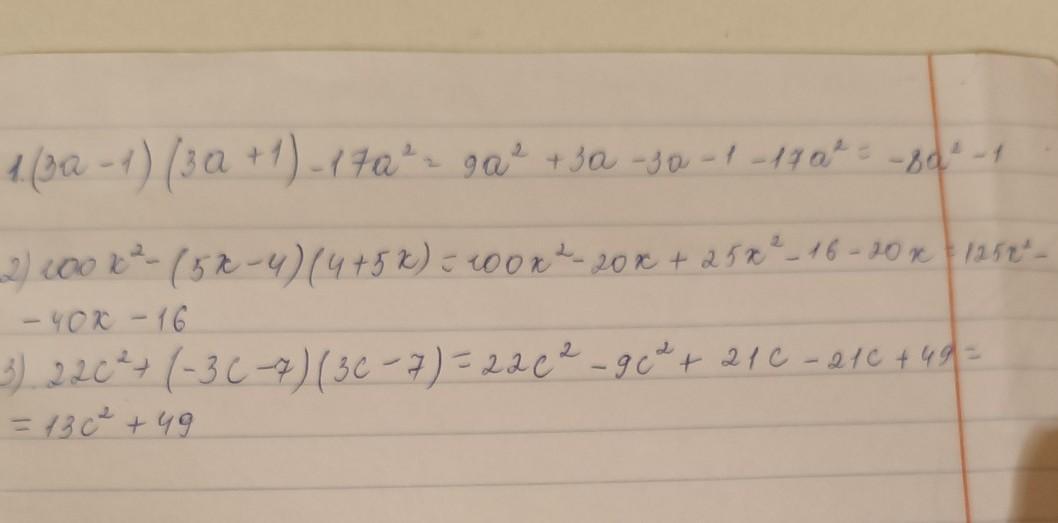 1. (3a - 1) (3a + 1) - 17a² = 9a² + 3a - 3a - 1 - 17a² = -8a² - 1
2) 100x² - (5x - 4)(4 + 5x) = 100x² - 20x + 25x² - 16 - 20x = 125x² -
- 40x - 16
3) 22c² + (-3c - 7)(3c - 7) = 22c² - 9c² + 21c - 21c + 49 =
= 13c² + 49